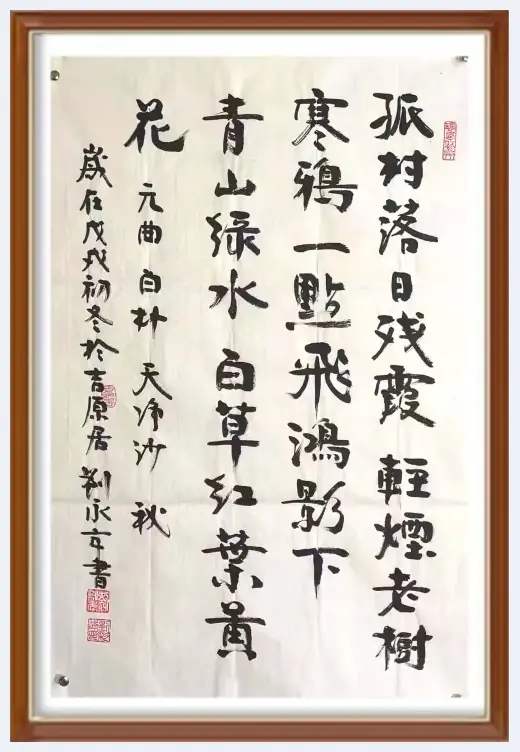 孤村落日残霞輕煙老樹
寒鴉一點飛鴻影下
青山綠水白草紅葉黃
花
元曲白朴天净沙秋
歲在戊戌初冬於吉原居劉永京書